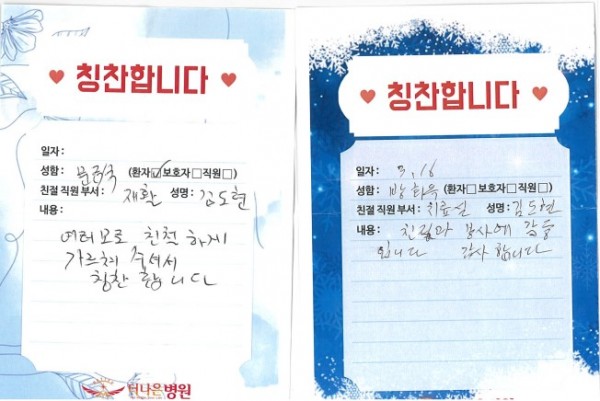 칭찬합니다
일자 :
성함 : (환자☑보호자□직원□)
친절 직원 부서 : 재활 성명 : 김도현
내용 :
여러모로 친절하게
가르쳐 주셔서
칭찬 합니다
더나은병원
칭찬합니다
일자 : 3, 16
성함 : 방하윽 (환자□보호자□직원□)
친절 직원 부서 : 치료실 성명 : 김도현
내용 : 친절과 감사에
입니다 감사합니다